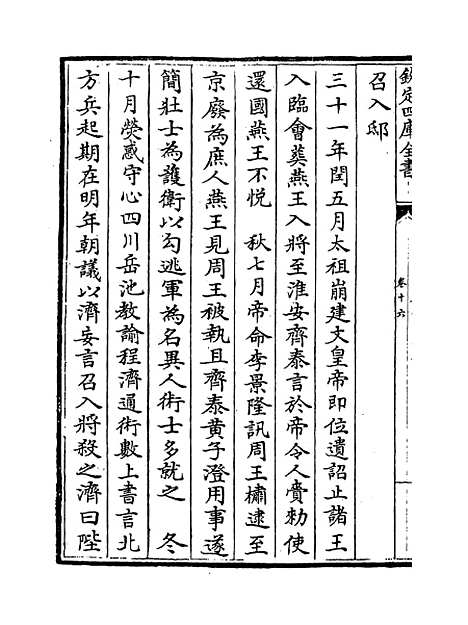 欽定四庫全書
卷十六
召入邸
三十一年閏五月太祖崩建文皇帝即位遺詔止諸王
入臨會葬燕王入將至淮安齊泰言於帝令人賫勑使
還國燕王不悅　秋七月帝命李景隆訊周王橚逮至
京廢為庶人燕王見周王被執且齊泰黄子澄用事遂
簡壯士為護衛以勾逃軍為名異人術士多就之　冬
十月熒惑守心四川岳池教諭程濟通術數上書言北
方兵起期在明年朝議以濟妄言召入將殺之濟曰陛